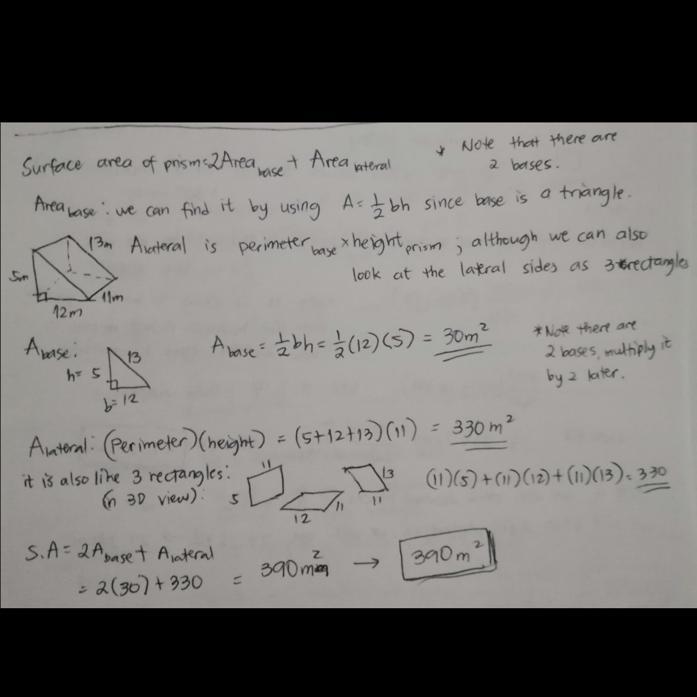 Surface area of prism = 2Area base + Area lateral
* Note that there are
2 bases.
Area base : we can find it by using A = 1/2 bh since base is a triangle.
13m
5m
11m
12m
Alateral is perimeter base × height prism ; although we can also
look at the lateral sides as 3 rectangles
A base :
h= 5
13
b= 12
A base = 1/2 bh = 1/2 (12)(5) = 30m²
*Note there are
2 bases, multiply it
by 2 later.
A lateral : (Perimeter)(height) = (5+12+13)(11) = 330 m²
it is also like 3 rectangles:
(in 3D view):
11
5
12
11
13
11
(11)(5)+(11)(12)+(11)(13) = 330
S.A = 2A base + A lateral
= 2(30)+330 = 390m² → 390m²